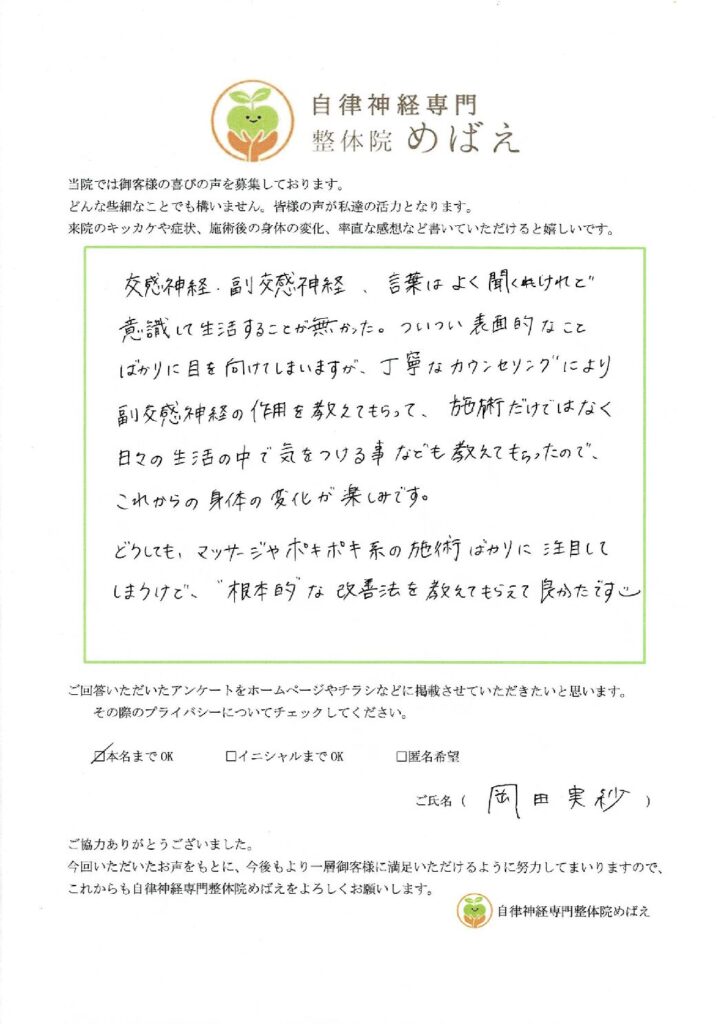 自律神経専門
整体院 めばえ
当院では御客様の喜びの声を募集しております。
どんな些細なことでも構いません。皆様の声が私達の活力となります。
来院のキッカケや症状、施術後の身体の変化、率直な感想など書いていただけると嬉しいです。
交感神経・副交感神経、言葉はよく聞くけれど
意識して生活することが無かった。ついつい表面的なこと
ばかりに目を向けてしまいますが、丁寧なカウンセリングにより
副交感神経の作用を教えてもらって、施術だけではなく
日々の生活の中で気をつける事なども教えてもらったので、
これからの身体の変化が楽しみです。
どうしても、マッサージやポキポキ系の施術ばかりに注目して
しまうけど、"根本的"な改善法を教えてもらえて良かたです
ご回答いただいたアンケートをホームページやチラシなどに掲載させていただきたいと思います。
その際のプライバシーについてチェックしてください。
☑本名までOK □イニシャルまでOK □匿名希望
ご氏名（ 岡田実紗 ）
ご協力ありがとうございました。
今回いただいたお声をもとに、今後もより一層御客様に満足いただけるように努力してまいりますので、
これからも自律神経専門整体院めばえをよろしくお願いします。
自律神経専門整体院めばえ